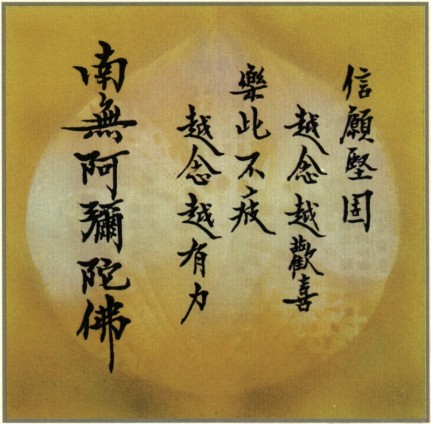 信願堅固
越念越歡喜
樂此不疲
越念越有力
南無阿彌陀佛